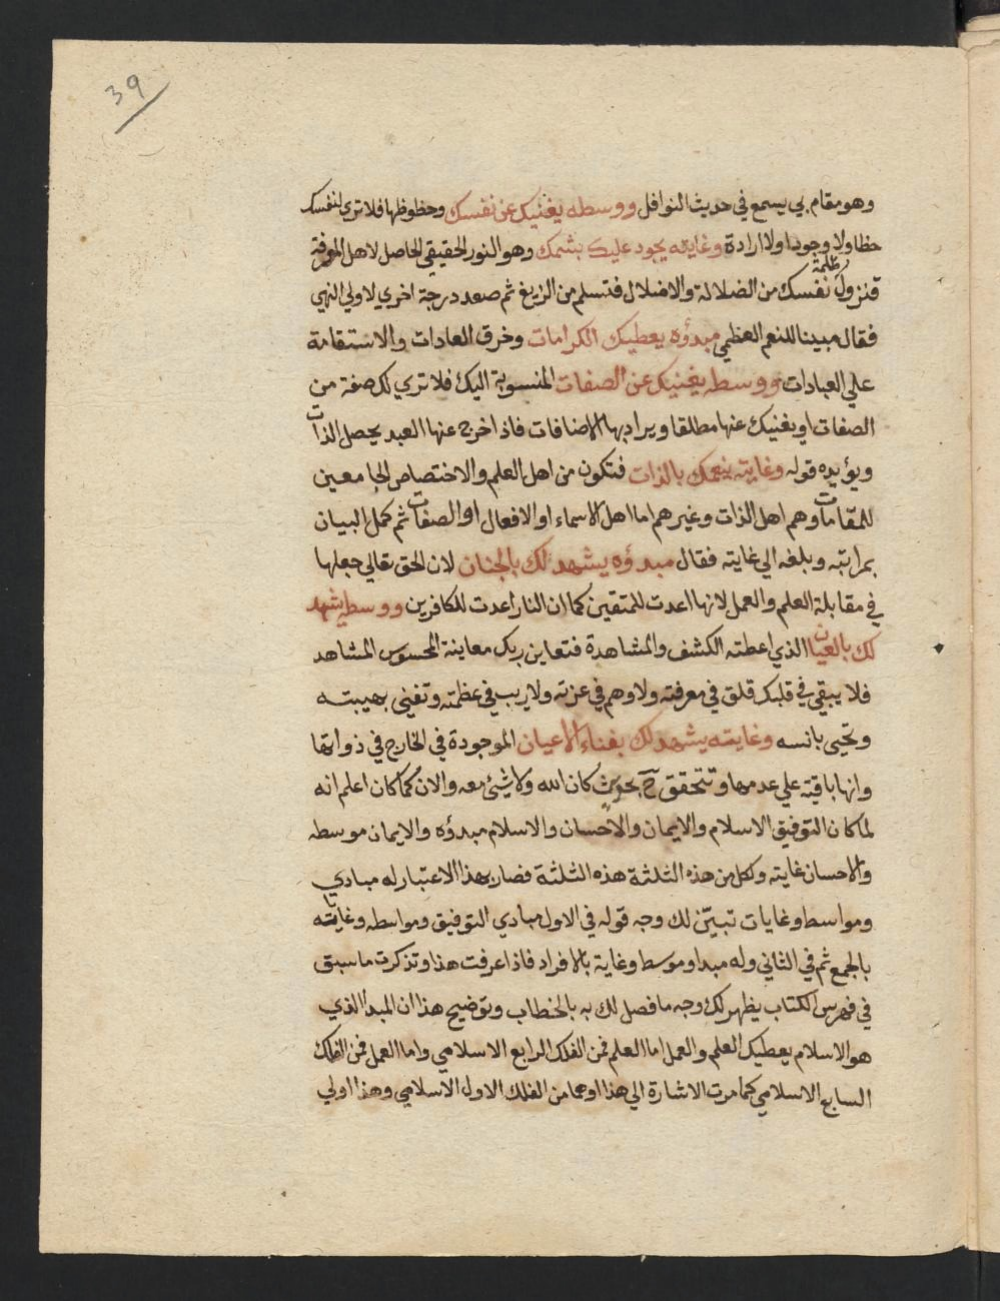 39
وهو مقام بي يسمع في حديث النوافل ووسطه يغنيك عن نفسك وحظوظها فلا تري لنفسك
حظا ولا وجودا ولا ارادة وغايته يجود عليك بشمك وهو النور الحقيقي الحاصل لاهل المعرفة
فتزول ظلمة نفسك من الضلالة والاضلال فتسلم من الزيغ ثم صعد درجة اخري لاولي النهي
فقال مبينا للنعم العظمي مبدؤه يعطيك الكرامات وخرق العادات والاستقامة
علي العبادات ووسطه يغنيك عن الصفات المنسوبة اليك فلا تري لك صفة من
الصفات او يغنيك عنها مطلقا ويراد بها الاضافات فاذا خرج عنها العبد يحصل الذات
ويؤيده قوله وغايته ينعمك بالذات فتكون من اهل العلم والاختصاص الجامعين
للمقامات وهم اهل الذات وغيرهم اما اهل الاسماء او الافعال او الصفات ثم كمل البيان
بمراتبه وبلغه الي غايته فقال مبدؤه يشهد لك بالجنان لان الحق تعالي جعلها
في مقابلة العلم والعمل لانها اعدت للمتقين كما ان النار اعدت للكافرين ووسطه يشهد
لك بالعيان الذي اعطته الكشف والمشاهدة فتعاين ربك معاينة المحسوس المشاهد
فلا يبقي في قلبك قلق في معرفته ولا وهم في عزته ولا ريب في عظمته وتفني بهيبته
وتحيي بانسه وغايته يشهد لك بفناء الاعيان الموجودة في الخارج في ذواتها
وانها باقية علي عدمها وتتحقق ح بحديث كان الله ولا شئ معه والان كما كان اعلم انه
لما كان التوفيق الاسلام والايمان والاحسان والاسلام مبدؤه والايمان موسطه
والاحسان غايته وكل من هذه الثلثة هذه الثلثة فصار بهذا الاعتبار له مبادي
ومواسط وغايات تبين لك وجه قوله في الاول مبادي التوفيق ومواسطه وغاياته
بالجمع ثم في الثاني وله مبدا وموسط وغاية بالافراد فاذا عرفت هذا وتذكرت ما سبق
في فهرس الكتاب يظهر لك وجه ما فصل لك به بالخطاب وتوضيح هذا ان المبدا الذي
هو الاسلام يعطيك العلم والعمل اما العلم فمن الفلك الرابع الاسلامي واما العمل فمن الفلك
السابع الاسلامي كما مرت الاشارة الي هذا او هما من الفلك الاول الاسلامي وهذا اولي